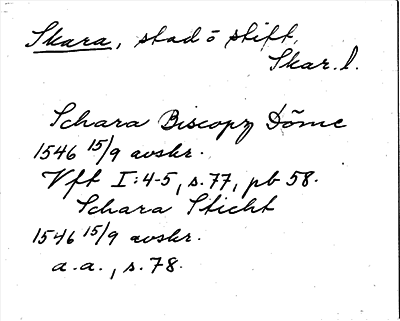 Skara, stad o stift,
Skar. l.
Schara Biscopz Döme
1546 15/9 avskr.
Vft I:4-5, s. 77, pb 58.
Schara Sticht
1546 15/9 avskr.
a.a., s. 78.